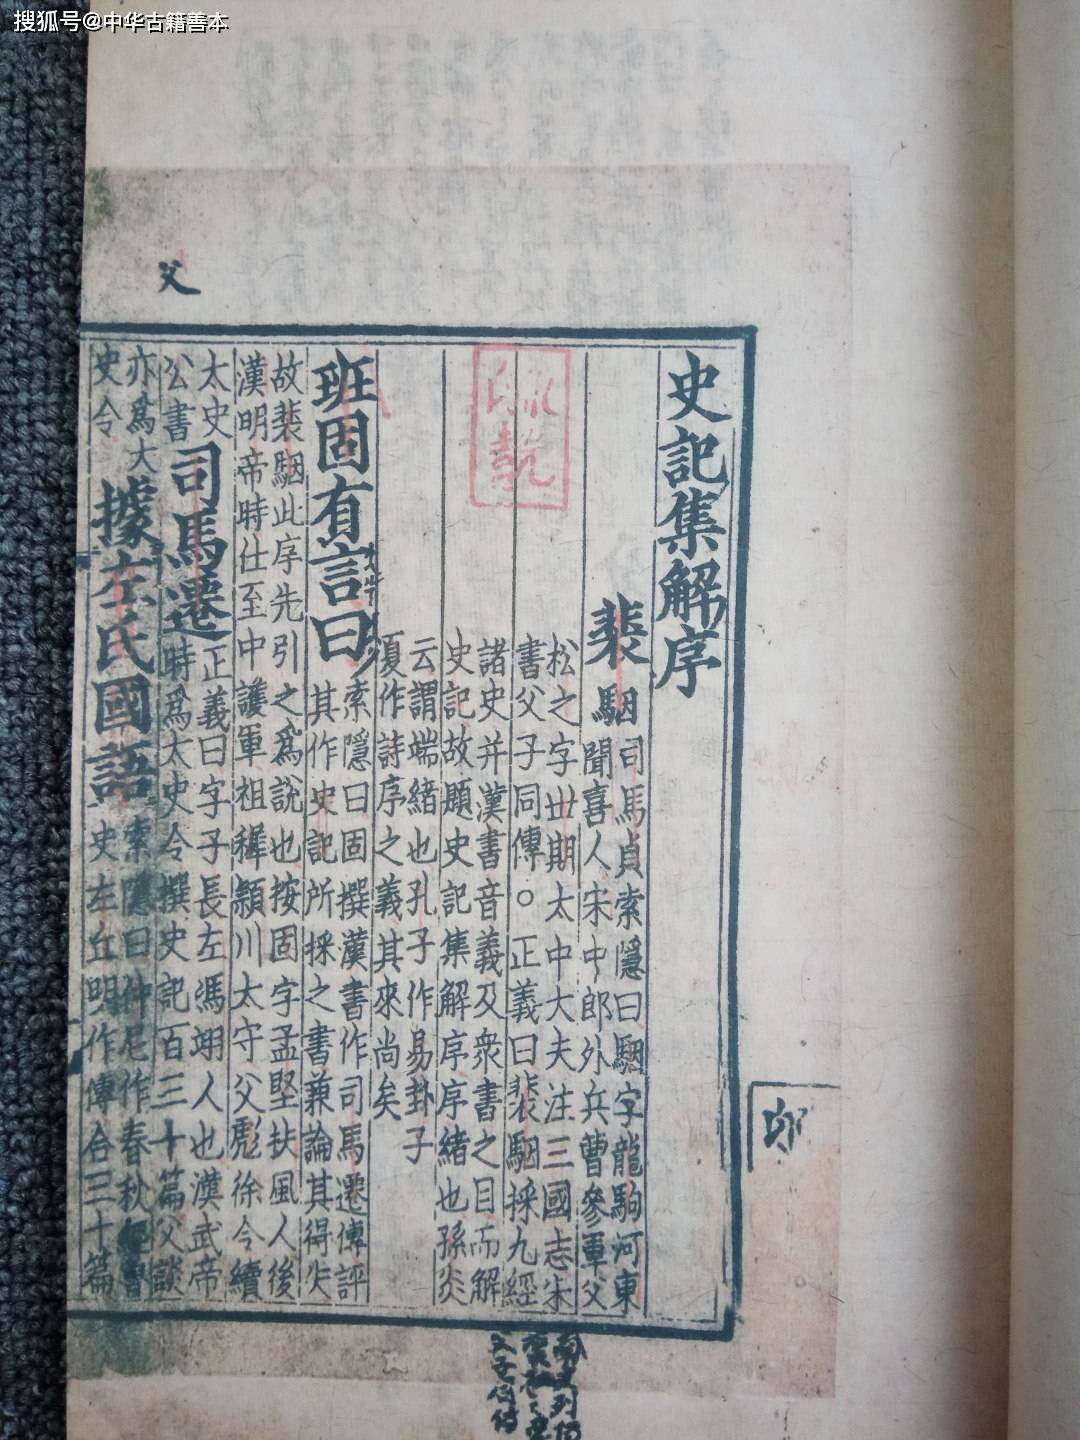 搜狐号@中华古籍善本
史記集解序
裴駰
司馬貞索隱曰駰字龍駒河東
聞喜人宋中郎外兵曹參軍父
松之字丗期太中大夫注三國志宋
書父子同傳○正義曰裴駰採九經
諸史并漢書音義及衆書之目而解
史記故題史記集解序序緒也孫炎
云謂端緒也孔子作易卦子
夏作詩序之義其來尚矣
班固有言曰
索隱曰固撰漢書作司馬遷傳評
其作史記所採之書兼論其得失
故裴駰此序先引之爲說也按固字孟堅扶風人後
漢明帝時仕至中護軍祖穉潁川太守父彪徐令續
太史
公書
司馬遷
正義曰字子長左馮翊人也漢武帝
時爲太史令撰史記百三十篇父談
亦爲大
史令
據左氏國語
索隱曰仲尼作春秋經魯
史左丘明作傳合三十篇